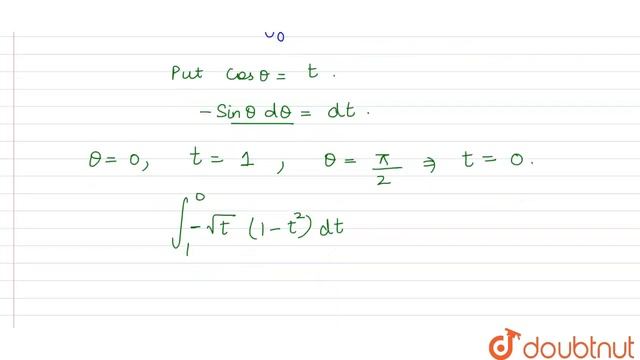 0
Put cosθ = t .
-Sinθ dθ = dt .
θ = 0, t = 1 , θ = π/2 ⇒ t = 0.
∫₁⁰ -√t (1-t²) dt
doubtnut